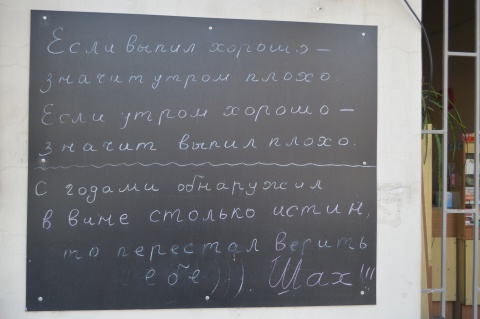 Если выпил хорошо –
значит утром плохо.
Если утром хорошо –
значит выпил плохо.
С годами обнаружил
в вине столько истин,
то перестал верить
ебе))). Шах!!!